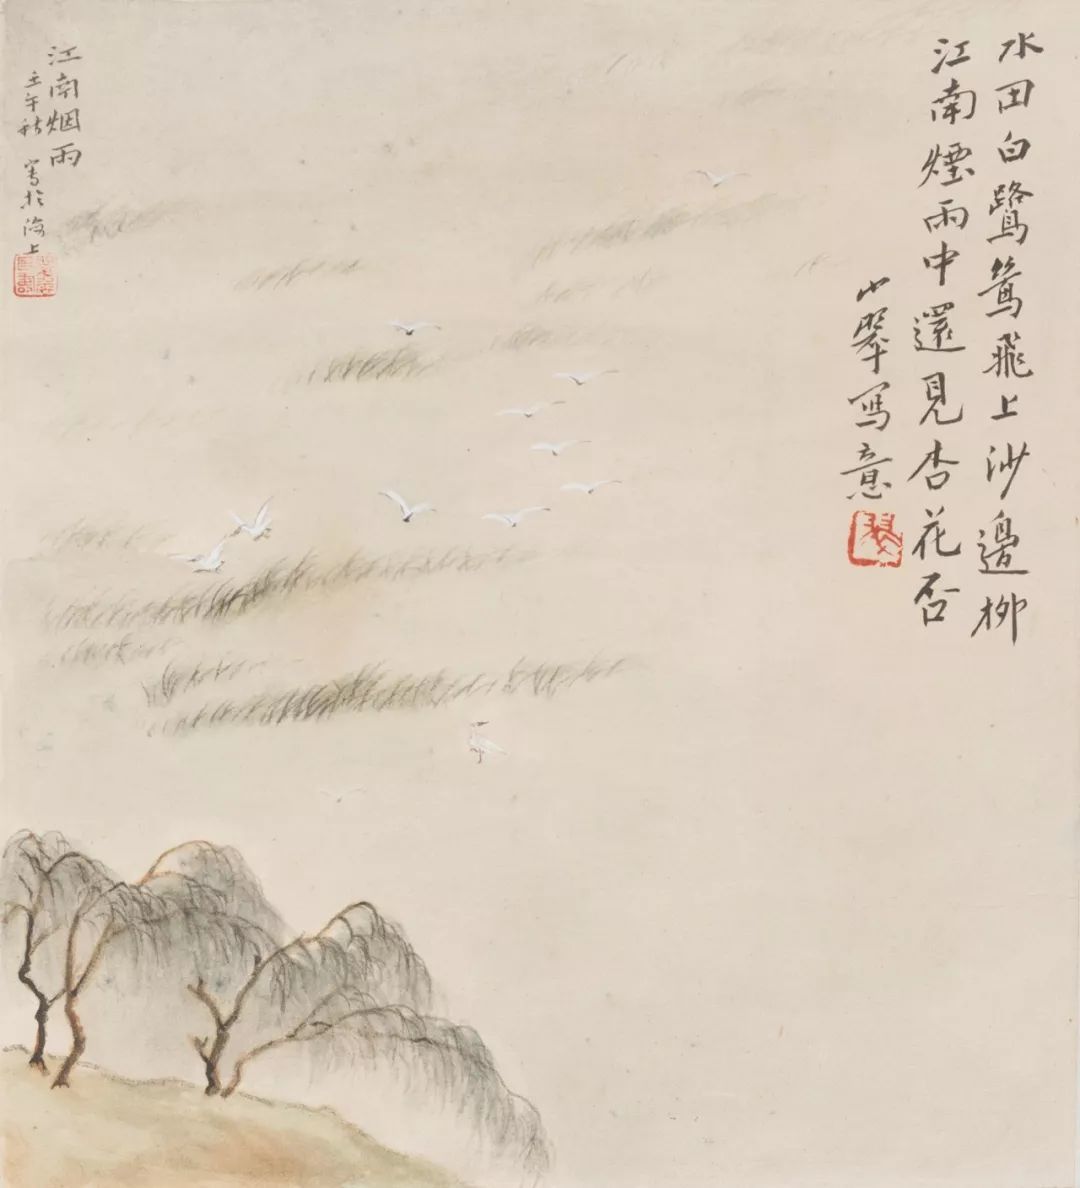 水田白鷺鷥飛上沙邊柳
江南煙雨中還見杏花否
小翠写意
江南烟雨
壬午秋寫於海上